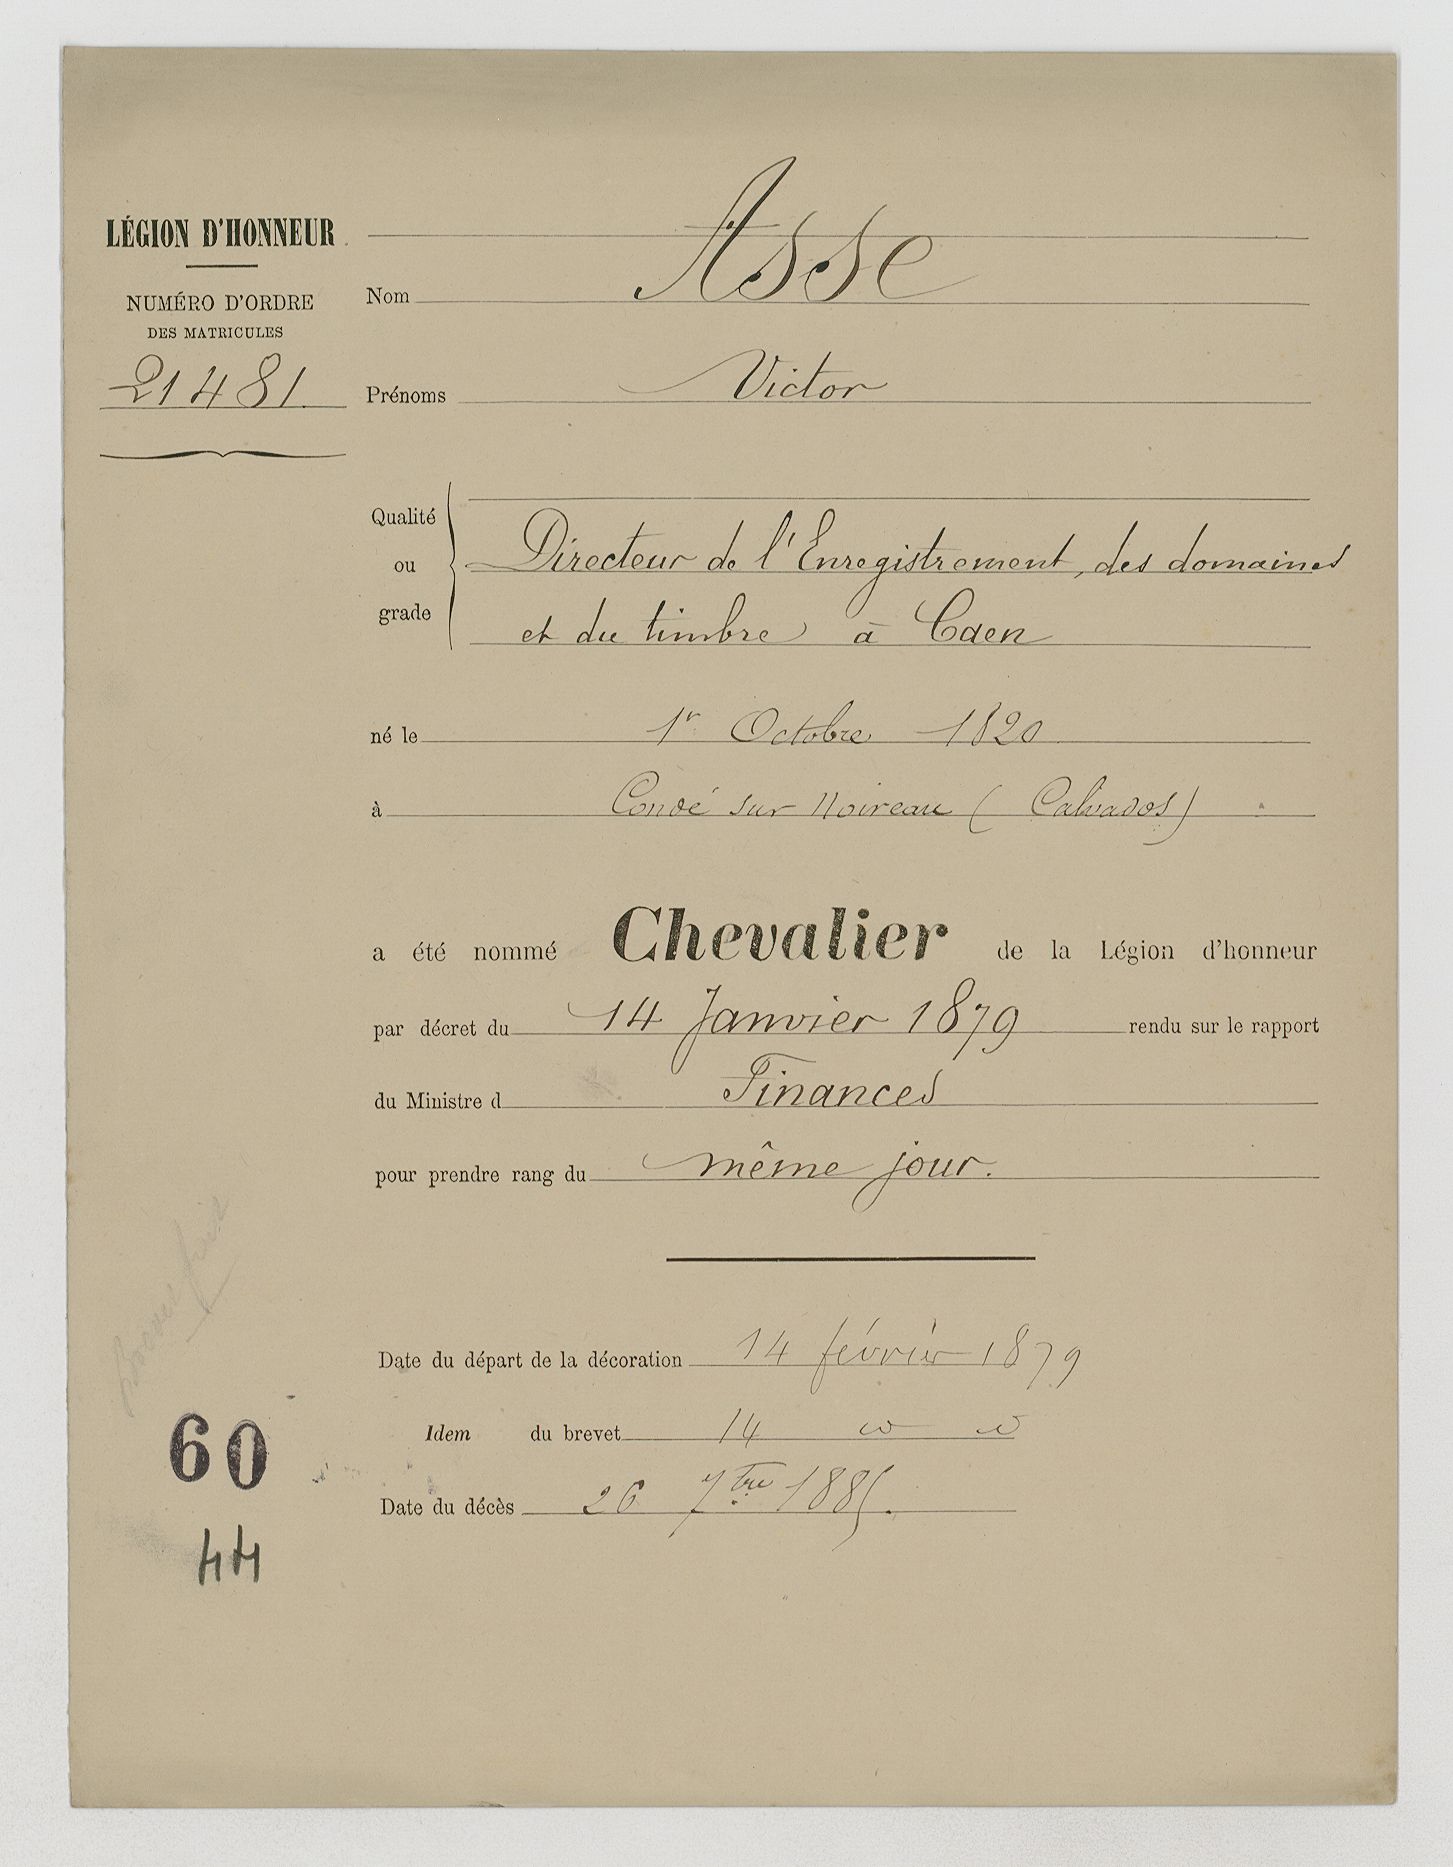 LÉGION D'HONNEUR
NUMÉRO D'ORDRE
DES MATRICULES
21481
Nom Asse
Prénoms Victor
Qualité
ou
grade
Directeur de l'Enregistrement, des domaines
et du timbre à Caen
né le 1r Octobre 1820
à Condé sur Noireau (Calvados)
a été nommé Chevalier de la Légion d'honneur
par décret du 14 Janvier 1879 rendu sur le rapport
du Ministre d Finances
pour prendre rang du même jour.
Date du départ de la décoration 14 février 1879
Idem du brevet 14
Date du décès 26 7bre 1885.
60
44